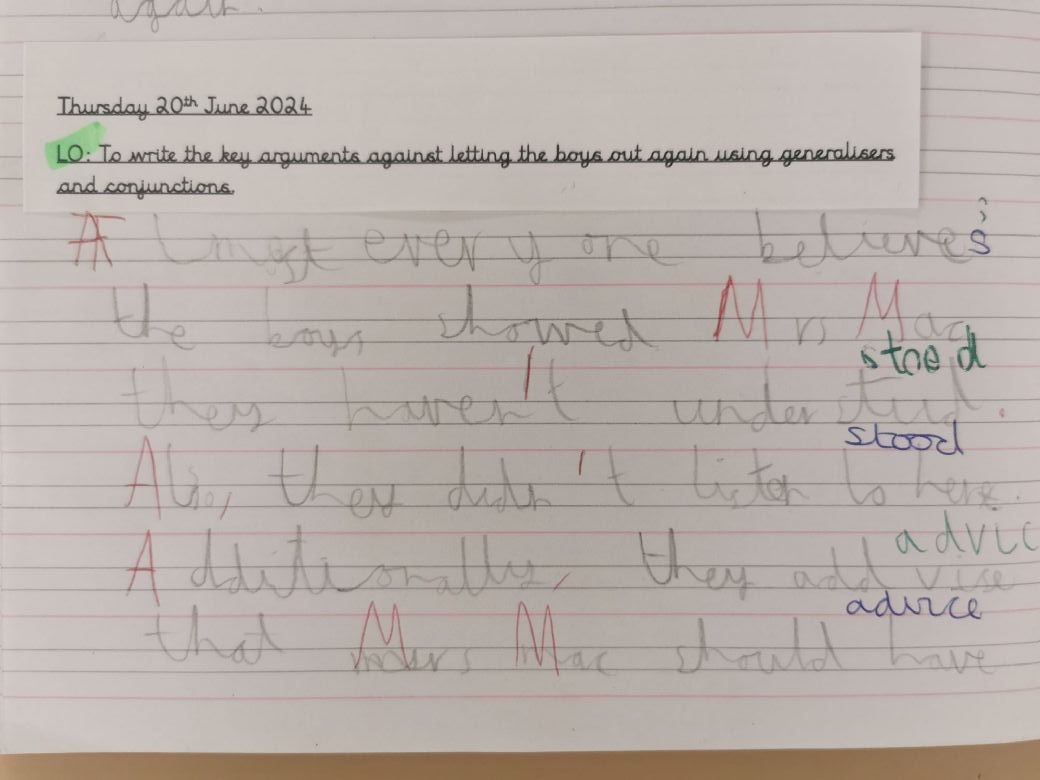 again.
Thursday 20th June 2024
LO: To write the key arguments against letting the boys out again using generalisers
and conjunctions.
Almost every one believes
the boys showed Mrs Mac
stoed
they haven't under stud.
stood
Also, they didn't listen to here.
advic
Additionally, they add vise
advice
that Mrs Mac should have